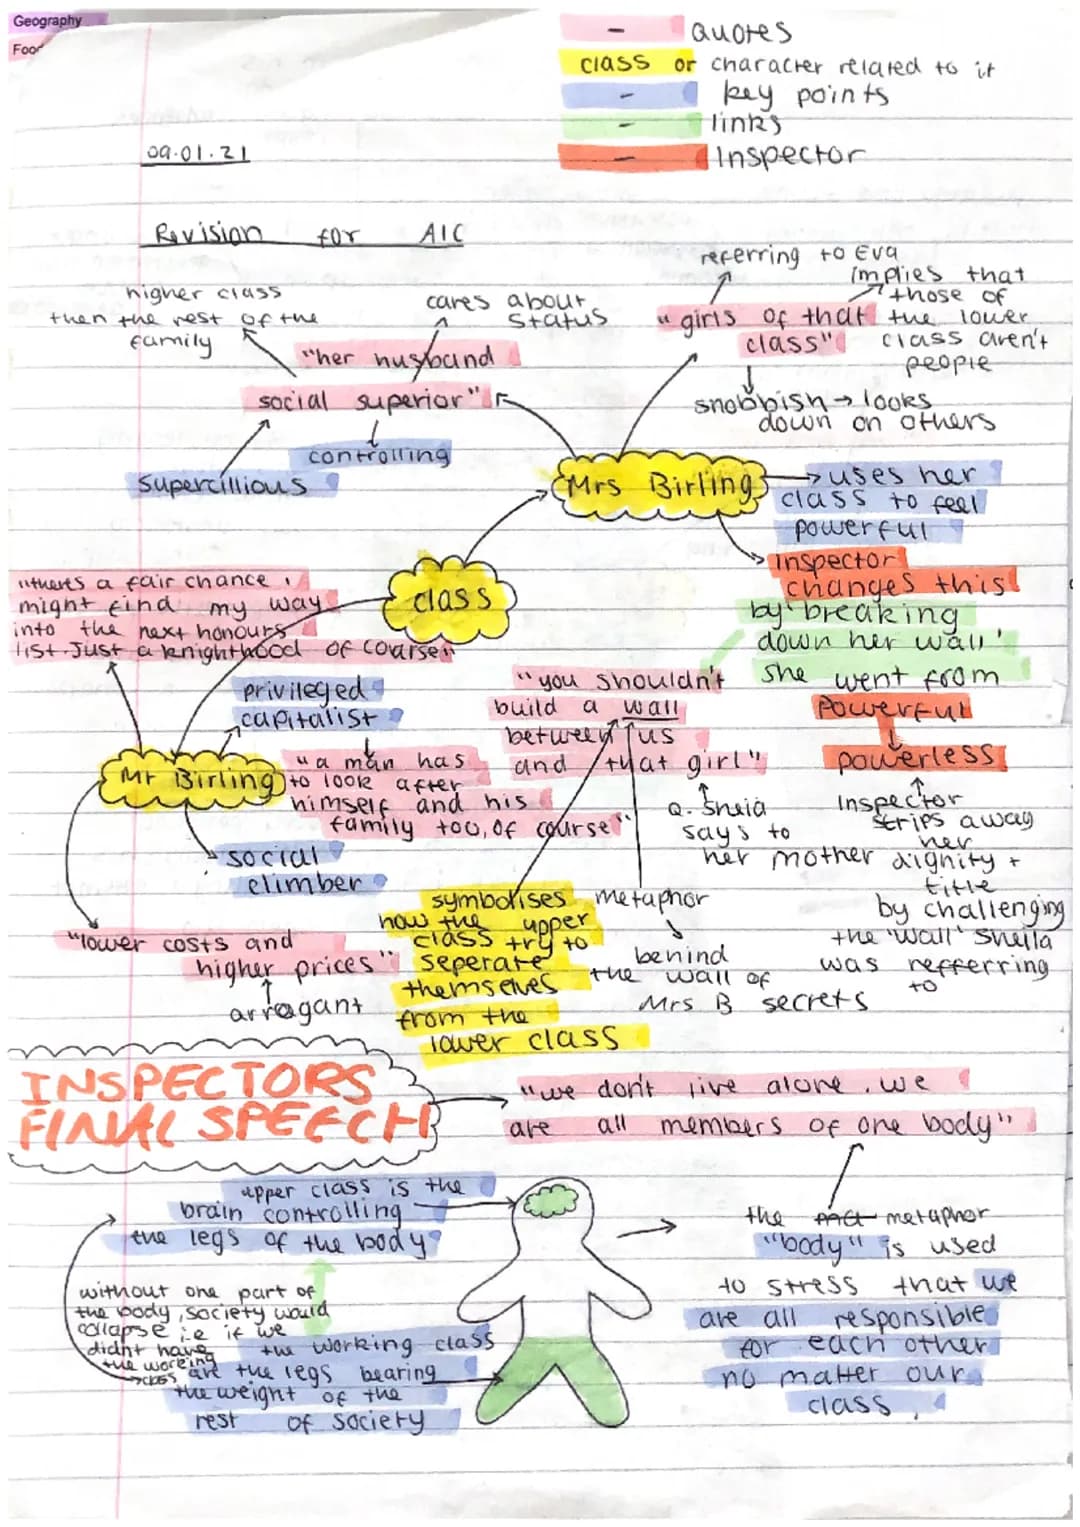 Geography
Foo
- quotes
class or character related to it
- key points
- links
- Inspector
09.01.21
Revision for AIC
higher class
then the rest of the
family
cares about
status
"her husband
social superior"
controlling
supercillious
referring to Eva
implies that
those of
the lower
class aren't
people
"girls of that
class"
snobbish → looks
down on others
Mrs Birling
uses her
class to feel
powerful
Inspector
changes this
by 'breaking
down her wall'
she went from
Powerful
powerless
Inspector
strips away
her
dignity +
title
by challenging
the 'wall' Sheila
was refferring
to
class
"theres a fair chance I
might find my way
into the next honours
list. Just a knighthood of course"
privileged
capitalist
Mr Birling
"a man has
to look after
himself and his
family too, of course"
social
climber
"lower costs and
higher prices"
arragant
"you shouldn't
build a wall
between us
and that girl"
Q. Sheia
says to
her mother
symbolises
how the upper
class try to
seperate
themselves
from the
lower class
metaphor
behind
the wall of
Mrs B secrets
INSPECTORS
FINAL SPEECH
"we don't live alone. we
are all members of one body"
upper class is the
brain controlling
the legs of the body
without one part of
the body, society would
collapse i.e if we
didnt have
the working
class
the working class
are the legs bearing
the weight of the
rest of society
the metaphor
"body" is used
to stress that we
are all responsible
for each other
no matter our
class,